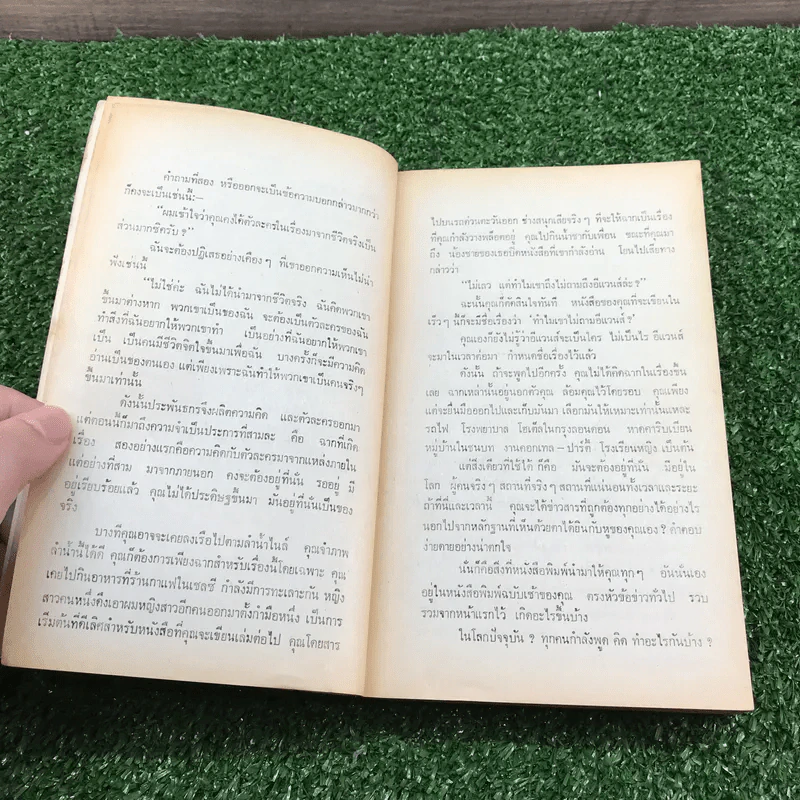 คำถามที่สอง หรือออกจะเป็นข้อความบอกกล่าวมากกว่า
ก็คงจะเป็นเช่นนี้:—
"ผมเข้าใจว่าคุณคงได้ตัวละครในเรื่องมาจากชีวิตจริงเป็น
ส่วนมากซิครับ ?"
ฉันจะต้องปฏิเสธอย่างเคือง ๆ ที่เขาออกความเห็นไม่น่า
ฟังเช่นนี้
"ไม่ใช่ค่ะ ฉันไม่ได้นำมาจากชีวิตจริง ฉันคิดพวกเขา
ขึ้นมาต่างหาก พวกเขาเป็นของฉัน จะต้องเป็นตัวละครของฉัน
ทำสิ่งที่ฉันอยากให้พวกเขาทำ เป็นอย่างที่ฉันอยากให้พวกเขา
เป็น เป็นคนมีชีวิตจิตใจขึ้นมาเพื่อฉัน บางครั้งก็จะมีความคิด
อ่านเป็นของตนเอง แต่เพียงเพราะฉันทำให้พวกเขาเป็นคนจริงๆ
ขึ้นมาเท่านั้น
ดังนั้นประพันธกรจึงผลิตความคิด และตัวละครออกมา
แต่ตอนนี้ก็มาถึงความจำเป็นประการที่สามละ คือ ฉากที่เกิด
เรื่อง สองอย่างแรกคือความคิดกับตัวละครมาจากแหล่งภายใน
แต่อย่างที่สาม มาจากภายนอก คงจะต้องอยู่ที่นั่น รออยู่ มี
อยู่เรียบร้อยแล้ว คุณไม่ได้ประดิษฐขึ้นมา มันอยู่ที่นั่นเป็นของ
จริง
บางทีคุณอาจจะเคยลงเรือไปตามลำน้ำไนล์ คุณจำภาพ
ลำน้ำนี้ได้ดี คุณก็ต้องการเพียงฉากสำหรับเรื่องนี้โดยเฉพาะ คุณ
เคยไปกินอาหารที่ร้านกาแฟในเชลซี กำลังมีการทะเลาะกัน หญิง
สาวคนหนึ่งดึงเอาผมหญิงสาวอีกคนออกมาตั้งกำมือหนึ่ง เป็นการ
เริ่มต้นที่ดีเลิศสำหรับหนังสือที่คุณจะเขียนเล่มต่อไป คุณโดยสาร
ไปบนรถด่วนตะวันออก ช่างสนุกเสียจริงๆ ที่จะให้ฉากเป็นเรื่อง
ที่คุณกำลังวางพล็อตอยู่ คุณไปกินน้ำชากับเพื่อน ขณะที่คุณมา
ถึง น้องชายของเธอปิดหนังสือที่เขากำลังอ่าน โยนไปเสียทาง
กล่าวว่า
"ไม่เลว แต่ทำไมเขาถึงไม่ถามถึงอีแวนส์ล่ะ ?"
ฉะนั้นคุณก็ตัดสินใจทันที หนังสือของคุณที่จะเขียนใน
เร็วๆ นี้ก็จะมีชื่อเรื่องว่า 'ทำไมเขาไม่ถามอีแวนส์?'
คุณเองก็ยังไม่รู้ว่าอีแวนส์จะเป็นใคร ไม่เป็นไร อีแวนส์
จะมาในเวลาต่อมา กำหนดชื่อเรื่องไว้แล้ว
ดังนั้น ถ้าจะพูดไปอีกครั้ง คุณไม่ได้คิดฉากในเรื่องขึ้น
เลย ฉากเหล่านั้นอยู่นอกตัวคุณ ล้อมคุณไว้โดยรอบ คุณเพียง
แต่จะยื่นมือออกไปและเก็บมันมา เลือกมันให้เหมาะเท่านั้นแหละ
รถไฟ โรงพยาบาล โฮเต็ลในกรุงลอนดอน หาดคาริบเบียน
หมู่บ้านในชนบท งานคอกเทล—ปาร์ตี้ โรงเรียนหญิง เป็นต้น
แต่สิ่งเดียวที่ใช้ได้ ก็คือ มันจะต้องอยู่ที่นั่น มีอยู่ใน
โลก ผู้คนจริงๆ สถานที่จริงๆ สถานที่แน่นอนทั้งเวลาและระยะ
ถ้าที่นี่และเวลานี้ คุณจะได้ข่าวสารที่ถูกต้องทุกอย่างได้อย่างไร
นอกไปจากหลักฐานที่เห็นด้วยตาได้ยินกับหูของคุณเอง ? คำตอบ
ง่ายดายอย่างน่าตกใจ
นั่นก็คือสิ่งที่หนังสือพิมพ์นำมาให้คุณทุกๆ อันนั่นเอง
อยู่ในหนังสือพิมพ์ฉบับเช้าของคุณ ตรงหัวข้อข่าวทั่วไป รวบ
รวมจากหน้าแรกไว้ เกิดอะไรขึ้นบ้าง
ในโลกปัจจุบัน ? ทุกคนกำลังพูด คิด ทำอะไรกันบ้าง ?